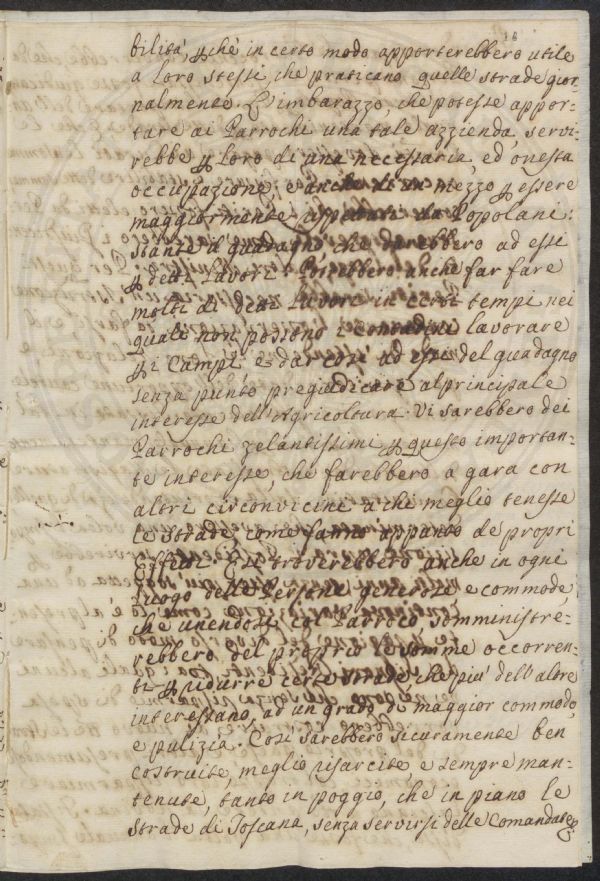 18
bilità, p̱chè in certo modo apporterebbero utile
a loro stessi, che praticano quelle strade gior-
nalmente. L'imbarazzo, che potesse appor-
tare ai Parrochi una tale azzienda, servi-
rebbe p̱ loro di una necessaria, ed onesta
occupazione, e anche di un mezzo p̱ essere
maggiormente rispettati da Popolani:
stante il guadagno che darebbero ad essi
p̱ detti Lavori. Potrebbero anche far fare
molti di detti Lavori in certi tempi nei
quali non possono i Contadini lavorare
p̱ i Campi, e dar così ad essi del guadagno
senza punto pregiudicare al principale
interesse dell'Agricoltura. Vi sarebbero dei
Parrochi zelantissimi p̱ questo importan-
te interesse, che farebbero a gara con
altri circonvicini a chi meglio tenesse
le strade, come fanno appunto de propri
Effetti. E si troverebbero anche in ogni
luogo delle Persone generose e commode,
che unendosi col Parroco somministre-
rebbero del proprio le somme occorren-
ti p̱ ridurre certe strade che più dell'altre
interessano, ad un grado di maggior commodo,
e pulizia. Così sarebbero sicuramente ben
costruite, meglio risarcite, e sempre man-
tenute, tanto in poggio, che in piano le
strade di Toscana, senza servirsi delle Comandate